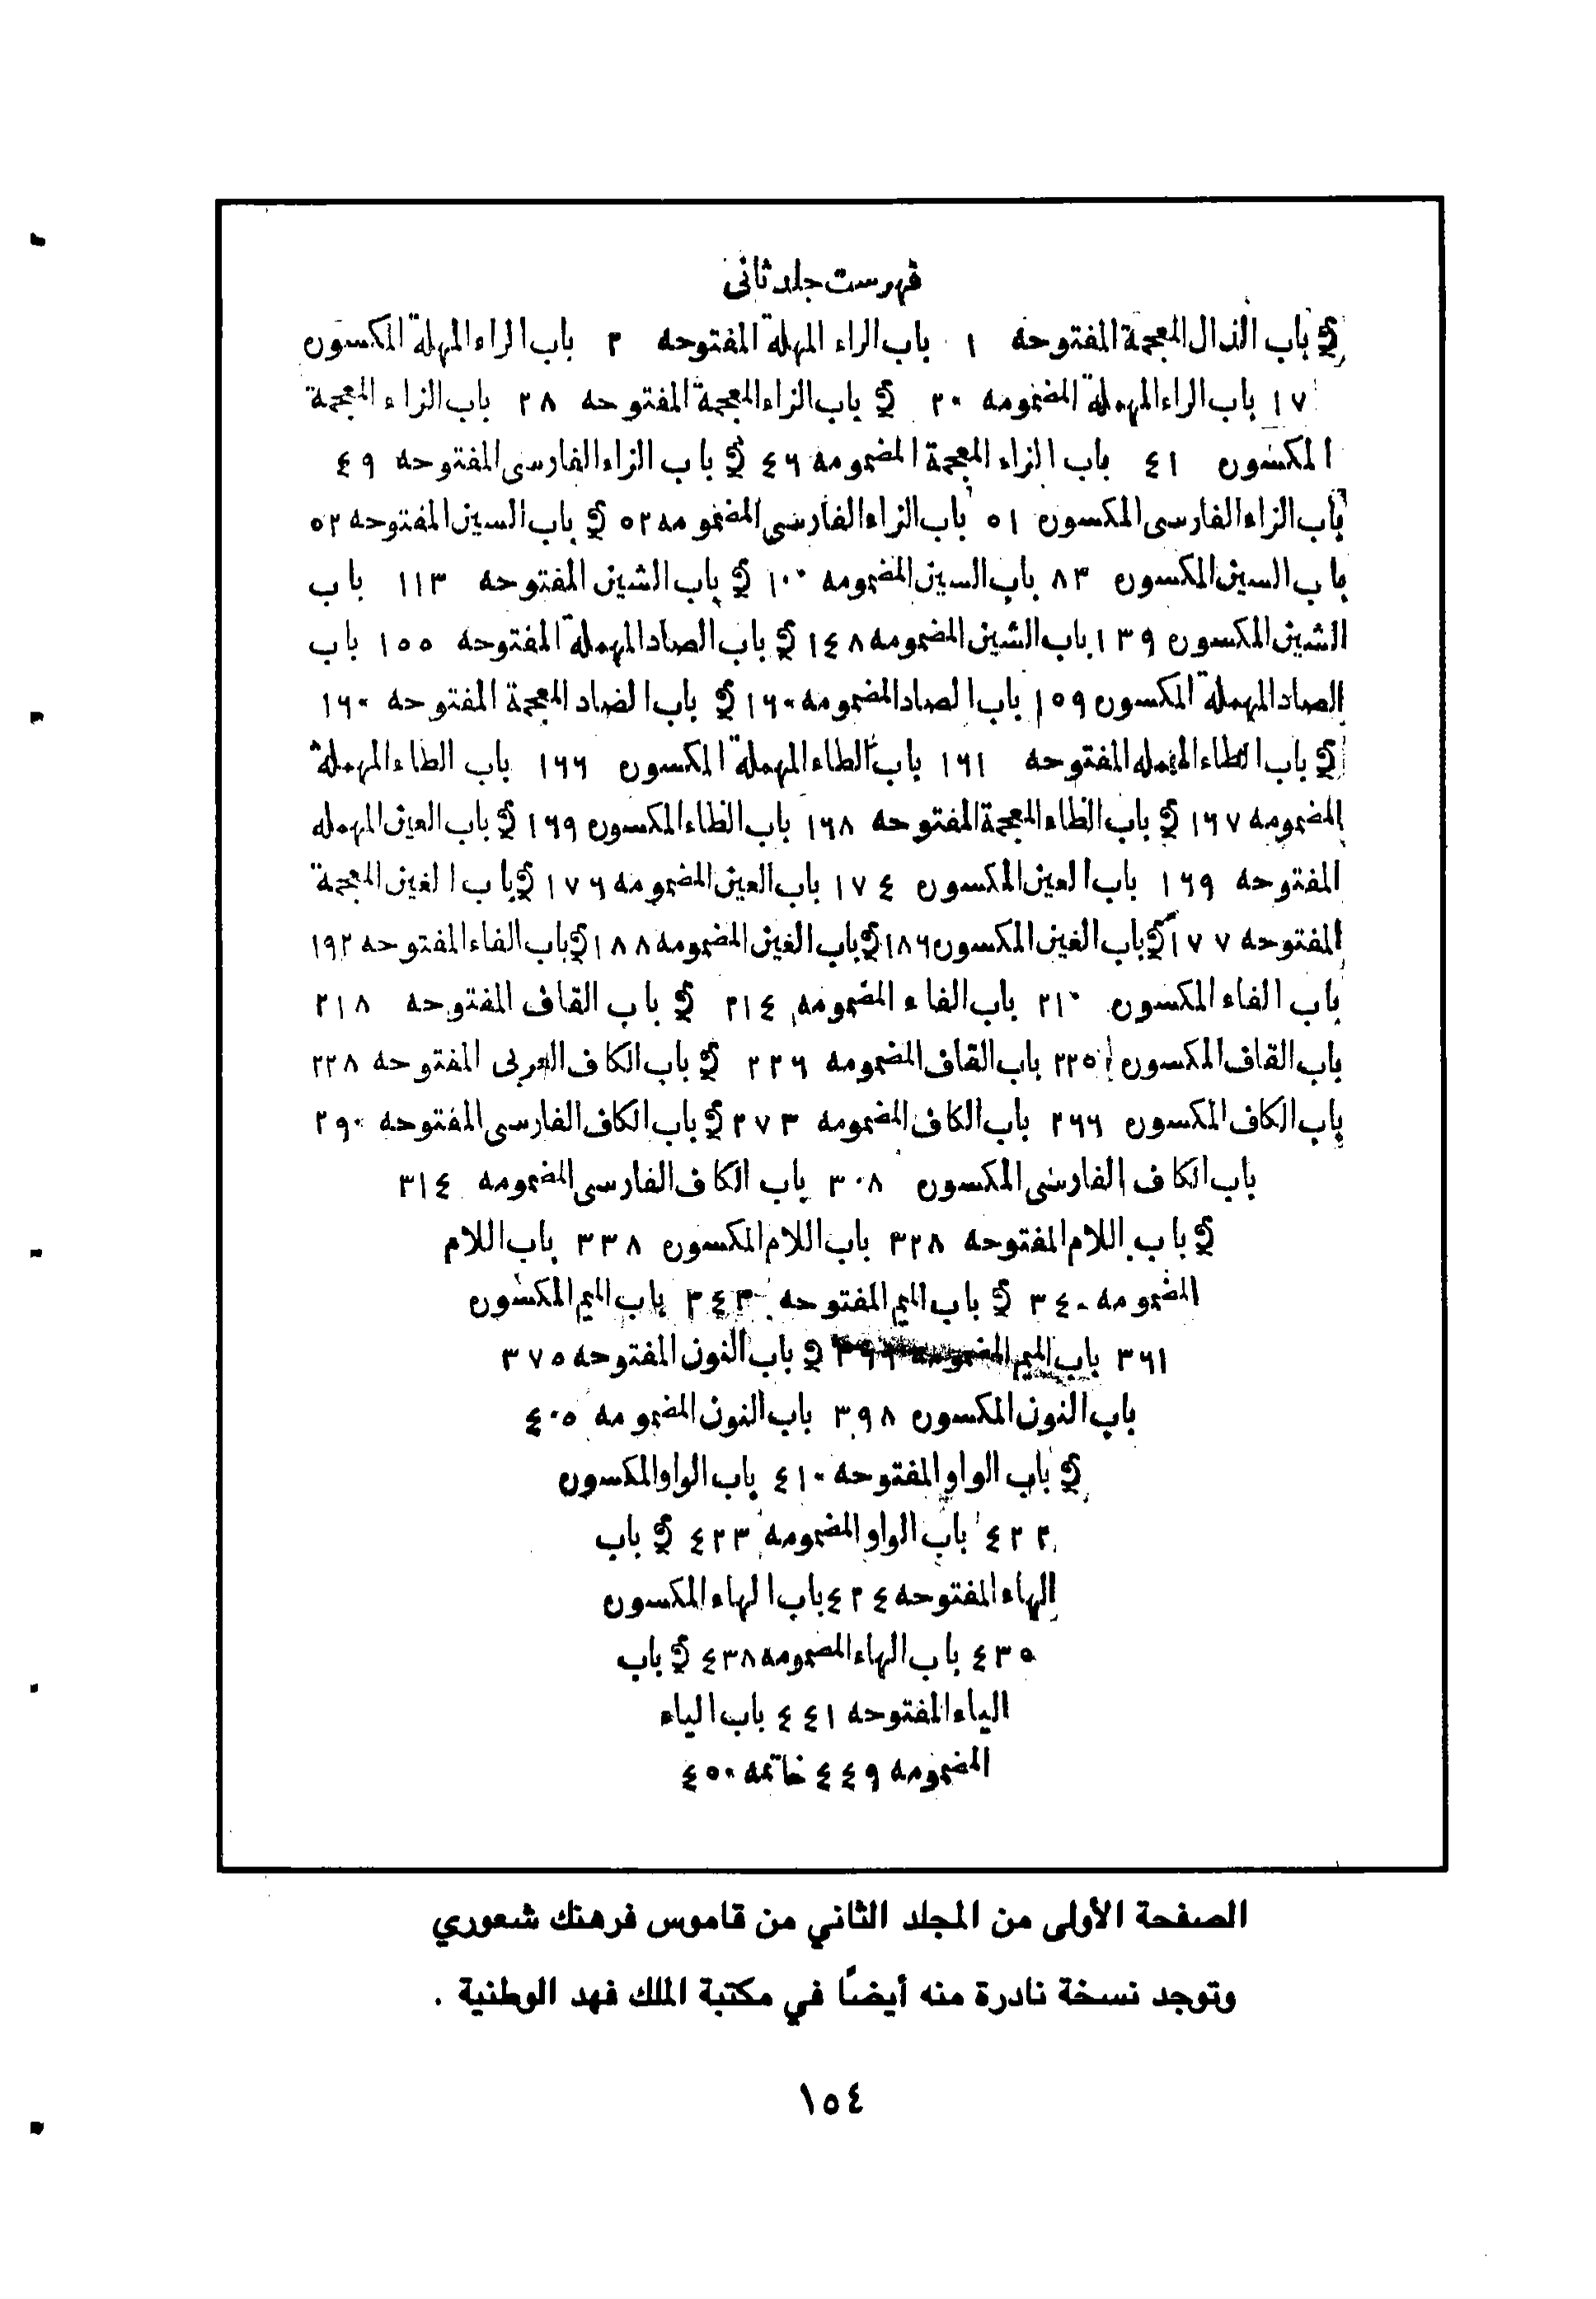 فهرست جلد ثانى
باب الذال المعجمة المفتوحه ١ باب الراء المهملة المفتوحه ٢ باب الراء المهملة المكسوره
١٧ باب الراء المهملة المضمومه ٢٠ باب الزاء المعجمة المفتوحه ٢٨ باب الزاء المعجمة
المكسوره ٤١ باب الزاء المعجمة المضمومه ٤٦ باب الزاء الفارسى المفتوحه ٤٩
باب الزاء الفارسى المكسوره ٥١ باب الزاء الفارسى المضمومه ٥٢ باب السين المفتوحه ٥٢
باب السين المكسوره ٨٣ باب السين المضمومه ١٠٠ باب الشين المفتوحه ١١٣ باب
الشين المكسوره ١٣٩ باب الشين المضمومه ١٤٨ باب الصاد المهملة المفتوحه ١٥٥ باب
الصاد المهملة المكسوره ١٥٩ باب الصاد المضمومه ١٦٠ باب الضاد المعجمة المفتوحه ١٦٠
باب الطاء المهمله المفتوحه ١٦١ باب الطاء المهملة المكسوره ١٦٦ باب الطاء المهملة
المضمومه ١٦٧ باب الظاء المعجمة المفتوحه ١٦٨ باب الظاء المكسوره ١٦٩ باب العين المهمله
المفتوحه ١٦٩ باب العين المكسوره ١٧٤ باب العين المضمومه ١٧٦ باب الغين المعجمة
المفتوحه ١٧٧ باب الغين المكسوره ١٨٦ باب الغين المضمومه ١٨٨ باب الفاء المفتوحه ١٩٢
باب الفاء المكسوره ٢١٠ باب الفاء المضمومه ٢١٤ باب القاف المفتوحه ٢١٨
باب القاف المكسوره ٢٢٥ باب القاف المضمومه ٢٢٦ باب الكاف العربى المفتوحه ٢٢٨
باب الكاف المكسوره ٢٦٦ باب الكاف المضمومه ٢٧٣ باب الكاف الفارسى المفتوحه ٢٩٠
باب الكاف الفارسى المكسوره ٣٠٨ باب الكاف الفارسى المضمومه ٣١٤
باب اللام المفتوحه ٣٢٨ باب اللام المكسوره ٣٣٨ باب اللام
المضمومه ٣٤٠ باب الميم المفتوحه ٣٤٣ باب الميم المكسوره
٣٦١ باب الميم المضمومه باب النون المفتوحه ٣٧٥
باب النون المكسوره ٣٩٨ باب النون المضمومه ٤٠٥
باب الواو المفتوحه ٤١٠ باب الواو المكسوره
٤٢٢ باب الواو المضمومه ٤٢٣ باب
الهاء المفتوحه ٤٢٤ باب الهاء المكسوره
٤٣٥ باب الهاء المضمومه ٤٣٨ باب
الياء المفتوحه ٤٤١ باب الياء
المضمومه ٤٤٩ خاتمه ٤٥٠
الصفحة الأولى من المجلد الثاني من قاموس فرهنك شعوري
وتوجد نسخة نادرة منه أيضًا في مكتبة الملك فهد الوطنية .
١٥٤